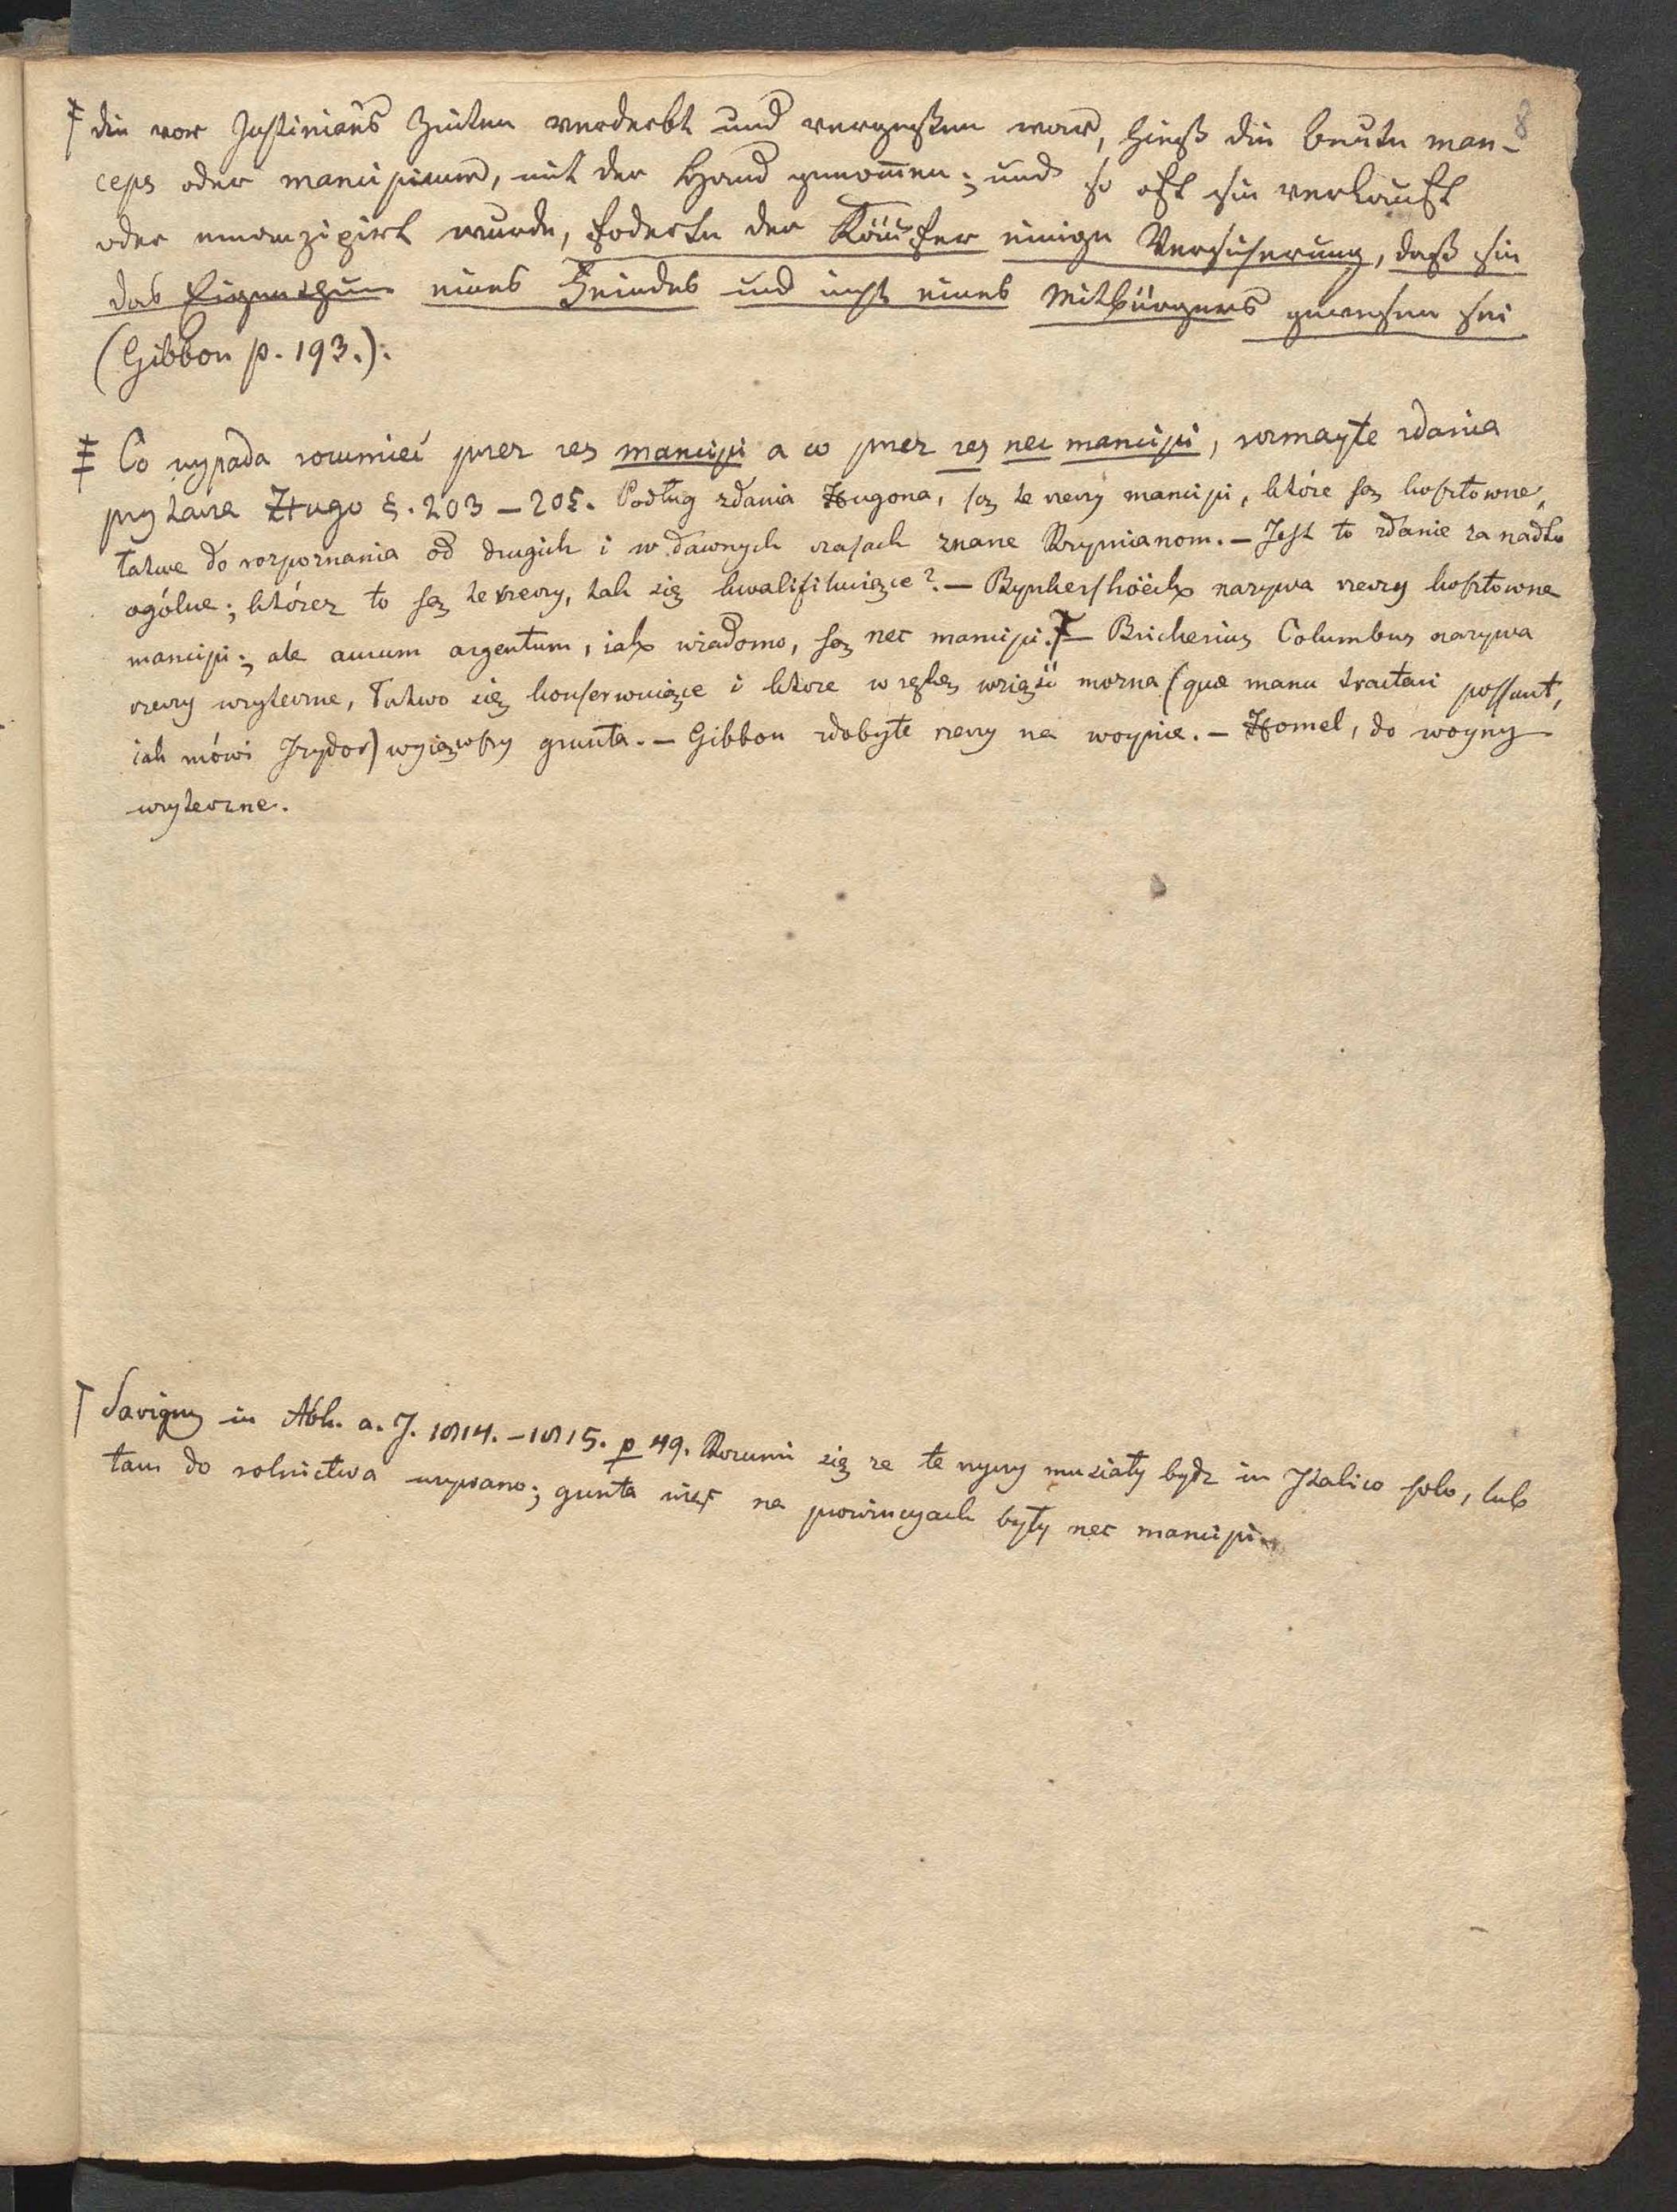 8
ǂ die vor Justinians Zeiten verderbt und vergeßen war, hieß die beute man-
ceps oder mancipium, mit der Hand genom̅en; und so oft sie verkauft
oder emanzipirt wurde, foderte der Käufer einige Versicherung, daß sie
das Eigenthum eines Feindes und nicht eines Mitbürgers gewesen sei
(Gibbon p. 193.).
ǂ Co wypada rozumieć przez res mancipi a co przez res nec mancipi, rozmayte zdania
przytacza Hugo §. 203 – 205. Podług zdania Hugona, są te rzeczy mancipi, które są kosztowne,
łatwe do rozpoznania od drugich i w dawnych czasach znane Rzymianom. – Jest to zdanie za nadto
ogólne; którez to są te rzeczy, tak się kwalifikuiące? – Bynkershöeck nazywa rzeczy kosztowne
mancipi; ale aurum argentum, iak wiadomo, są nec mancipi. Ŧ – Bricherius Columbus nazywa
rzeczy użyteczne, łatwo się konserwuiące i które w rękę wziąść mozna (quæ manu tractari possunt,
iak mówi Izydor) wyiąwszy grunta. – Gibbon zdobyte rzeczy na woynie. – Homel, do woyny
użyteczne.
Ŧ Savigny in Abh. a. J. 1814. – 1815. p 49. Rozumi się ze te rzeczy musiały bydz in Italico solo, lub
tam do rolnictwa używano; grunta więc na prowincyach były nec mancipi.